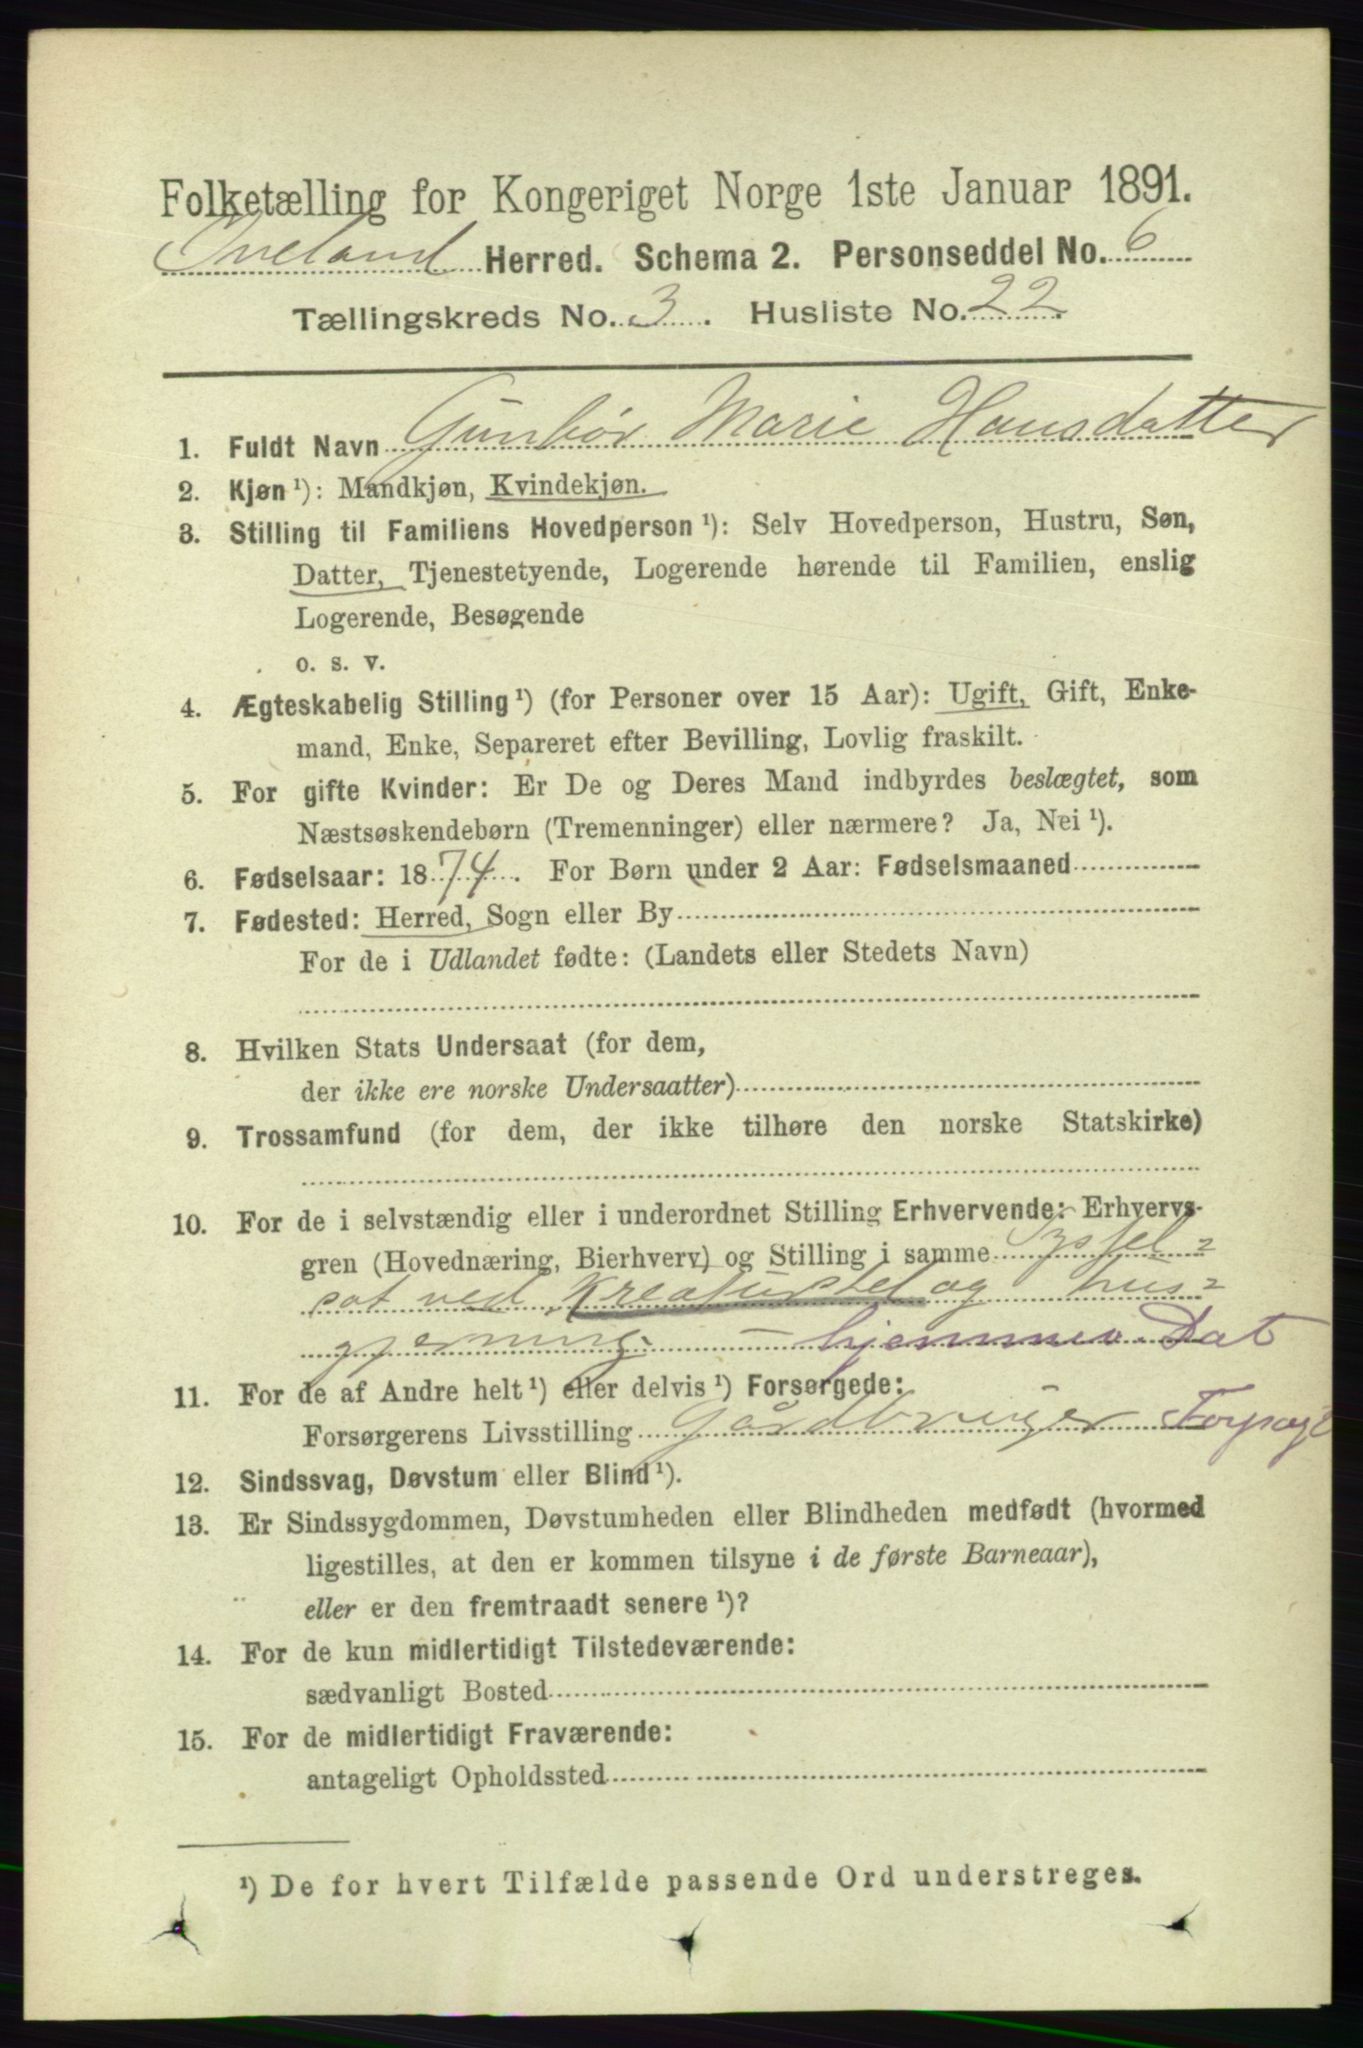 Folketælling for Kongeriget Norge 1ste Januar 1891.
Iveland Herred. Schema 2. Personseddel No. 6
Tællingskreds No. 3. Husliste No. 22.
1. Fuldt Navn Gunbór Marie Hansdatter
2. Kjøn ¹): Mandkjøn, Kvindekjøn.
3. Stilling til Familiens Hovedperson ¹): Selv Hovedperson, Hustru, Søn,
Datter, Tjenestetyende, Logerende hørende til Familien, enslig
Logerende, Besøgende
o. s. v.
4. Ægteskabelig Stilling ¹) (for Personer over 15 Aar): Ugift, Gift, Enke-
mand, Enke, Separeret efter Bevilling, Lovlig fraskilt.
5. For gifte Kvinder: Er De og Deres Mand indbyrdes beslægtet, som
Næstsøskendebørn (Tremenninger) eller nærmere? Ja, Nei ¹).
6. Fødselsaar: 1874. For Børn under 2 Aar: Fødselsmaaned
7. Fødested: Herred, Sogn eller By
For de i Udlandet fødte: (Landets eller Stedets Navn)
8. Hvilken Stats Undersaat (for dem,
der ikke ere norske Undersaatter)
9. Trossamfund (for dem, der ikke tilhøre den norske Statskirke)
10. For de i selvstændig eller i underordnet Stilling Erhvervende: Erhvervs-
gren (Hovednæring, Bierhverv) og Stilling i samme Syssel=
sat ved Kreaturstel og hus=
gjerning — hjemmev. Dat
11. For de af Andre helt ¹) eller delvis ¹) Forsørgede:
Forsørgerens Livsstilling Gårdbruger Forpagt
12. Sindssvag, Døvstum eller Blind ¹).
13. Er Sindssygdommen, Døvstumheden eller Blindheden medfødt (hvormed
ligestilles, at den er kommen tilsyne i de første Barneaar),
eller er den fremtraadt senere ¹)?
14. For de kun midlertidigt Tilstedeværende:
sædvanligt Bosted
15. For de midlertidigt Fraværende:
antageligt Opholdssted
¹) De for hvert Tilfælde passende Ord understreges.